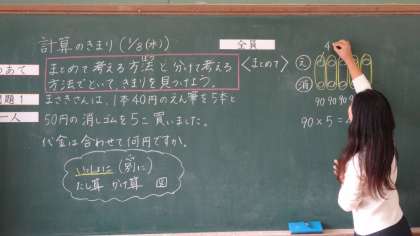 計算のきまり(1/8(水))
全員
めあて
まとめて考える方法と分けて考える
方法でといて、きまりを見つけよう。
問題1
まさきさんは、1本40円のえん筆を5本と
一人
50円の消しゴムを5こ買いました。
代金は合わせて何円ですか。
いっしょに(別に)
たし算 かけ算 図
<まとめて>
4
え
消
90 90 90 9
90×5=4